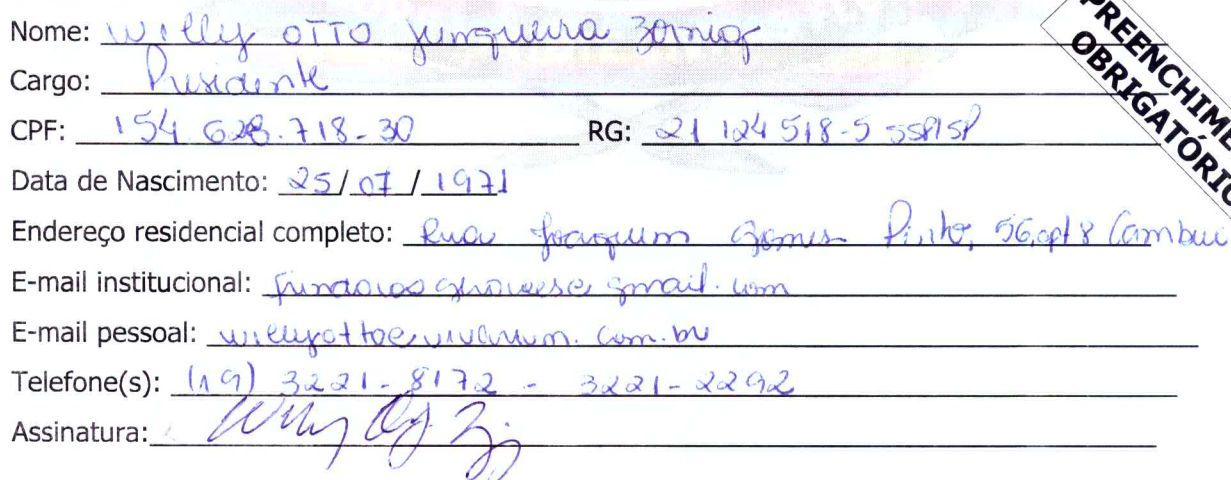 Nome: Willy OTTO Junqueira
Cargo: Presidente
CPF: 154.628.718-30 RG: 21 124 518-5 SSP/SP
Data de Nascimento: 25/07/1971
Endereço residencial completo: Rua Joaquim Gomes Pinto, 56, apt 8 Cambuí
E-mail institucional: gmail.com
E-mail pessoal:
Telefone(s): (19) 3221-8172 - 3221-2292
Assinatura:
PREENCHIME
OBRIGATÓRIO